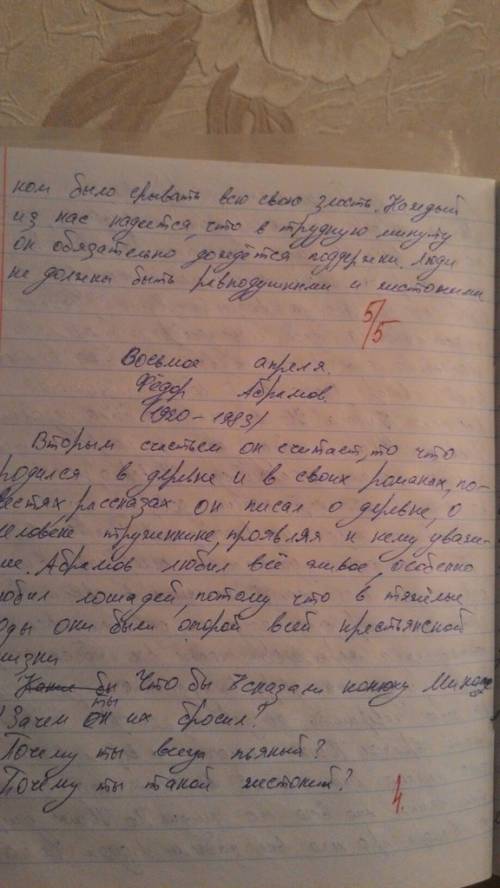 ком было срывать всю свою злость. Каждый
из нас надеется, что в трудную минуту
он обязательно дождётся поддержки. Люди
не должны быть равнодушными и жестокими
5/5
Восьмое апреля.
Фёдор Абрамов.
(1920-1983)
Вторым счастьем он считает, то что
родился в деревне и в своих романах, по-
вестях рассказах он писал о деревне, о
человеке труженнике, проявляя к нему уваже-
ние. Абрамов любил всё живое, особенно
любил лошадей, потому что в тяжёлые
годы они были опорой всей крестьянской
жизни
Что бы я сказали конюху
Зачем ты их бросил?
Почему ты всегда пьяный?
Почему ты такой жестокий?
4.